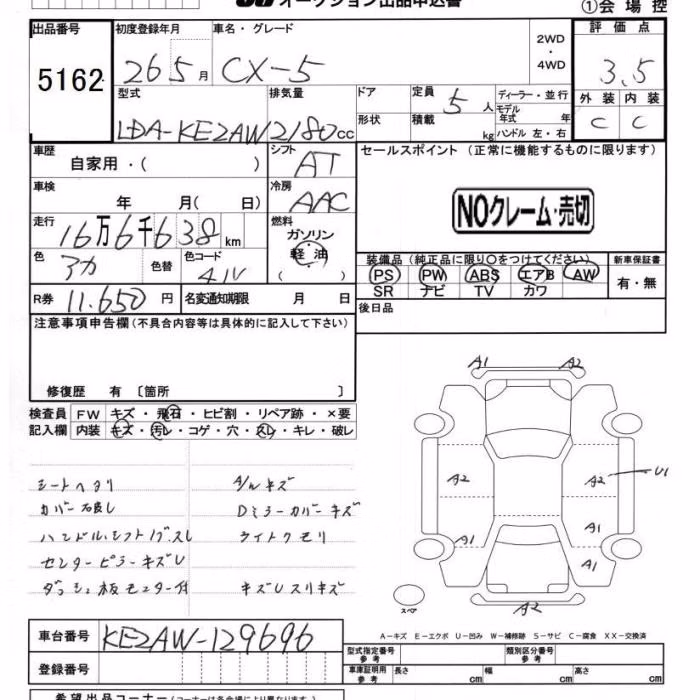 オークション出品申込書
①会場控
出品番号 初度登録年月 車名・グレード 2WD・4WD 評価点
5162 26 5月 CX-5 3.5
型式 排気量 ドア 定員 5人 ディーラー・並行 外装 内装
LDA-KE2AW 2180cc 形状 積載 kg モデル年式 年 C C
ハンドル 左・右
車歴 自家用・( ) シフト AT セールスポイント(正常に機能するものに限ります)
車検 年 月( 日) 冷房 AAC
NOクレーム・売切
走行 16万6千638km 燃料 ガソリン・軽油 ( )
色 アカ 色替 色コード 41V
装備品(純正品に限り〇をつけてください) 新車保証書
PS PW ABS エアB AW 有・無
SR ナビ TV カワ
R券 11.650円 名変通知期限 月 日
後日品
注意事項申告欄(不具合内容等は具体的に記入して下さい)
修復歴 有 〔箇所 〕
検査員 FW キズ・飛石・ヒビ割・リペア跡・×要
記入欄 内装 キズ・汚レ・コゲ・穴・スレ・キレ・破レ
シートヘタリ A/Wキズ
カバー破し Dミラーカバーキズ
ハンドル.シフトノブ.スレ ライトクモリ
センターピラーキズU
ダッシュ板モニター付 キズUスリキズ
A1 A2
A2 A2 U1
A1 A1
A1
A2
スペア
A-キズ E-エクボ U-凹み W-補修跡 S-サビ C-腐食 XX-交換済
車台番号 KE2AW-129696
登録番号
型式指定番号 参考 類別区分番号 参考
車庫証明用 参考 長さ cm 幅 cm 高さ cm
希望出品コーナー(コーナーは各会場により異なります)